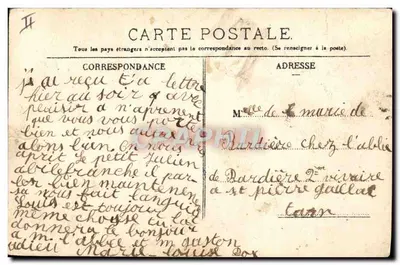 II
CARTE POSTALE.
Tous les pays étrangers n'acceptent pas la correspondance au recto. (Se renseigner à la poste).
CORRESPONDANCE
ADRESSE
j'ai reçu t'a lettre
hier au soir avec
plaisir a n'aprenent
que vous vous porté
bien et nous
alons bien on nous
aprit le petit Julien
il par
lon bien maintenen
sa nous fait
Louis est toujour
même chose tu lui
donnera le bonjour
a m. l'abbé et m gaston
adieu Marie Louise
Melle de marie de
Bardière chez l'abbé
de Bardière 2e vicaire
a st pierre gaillac
tarn